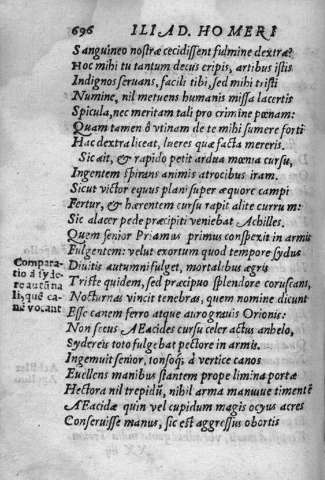 696 ILIAD. HOMERI
Sanguineo nostræ cecidissent fulmine dextræ?
Hoc mihi tu tantum decus eripis, artibus istis
Indignos seruans, facili tibi, sed mihi tristi
Numine, nil metuens humanis missa lacertis
Spicula, nec meritam tali pro crimine pœnam:
Quam tamen ô vtinam de te mihi sumere forti
Hac dextra liceat, lueres quæ facta mereris.
Sic ait, & rapido petit ardua mœnia cursu,
Ingentem spirans animis atrocibus iram.
Sicut victor equus plani super æquore campi
Fertur, & hærentem cursu rapit alite currum:
Sic alacer pede præcipiti veniebat Achilles.
Quem senior Priamus primus conspexit in armis
Fulgentem: velut exortum quod tempore sydus
Diuitis autumni fulget, mortalibus ægris
Triste quidem, sed præcipuo splendore coruscans,
Nocturnas vincit tenebras, quem nomine dicunt
Esse canem ferro atque aurognauis Orionis:
Non secus AEacides cursu celer actus anhelo,
Sydereis toto fulgebat pectore in armis.
Ingemuit senior, tonsosq; à vertice canos
Euellens manibus stantem prope limina portæ
Hectora nil trepidū, nihil arma manuue timentē
AEacidæ quin vel cupidum magis ocyus acres
Conseruisse manus, sic est aggressus obortis
Compara-
tio à sydere
autūna
li, quē ca-
nē vocant